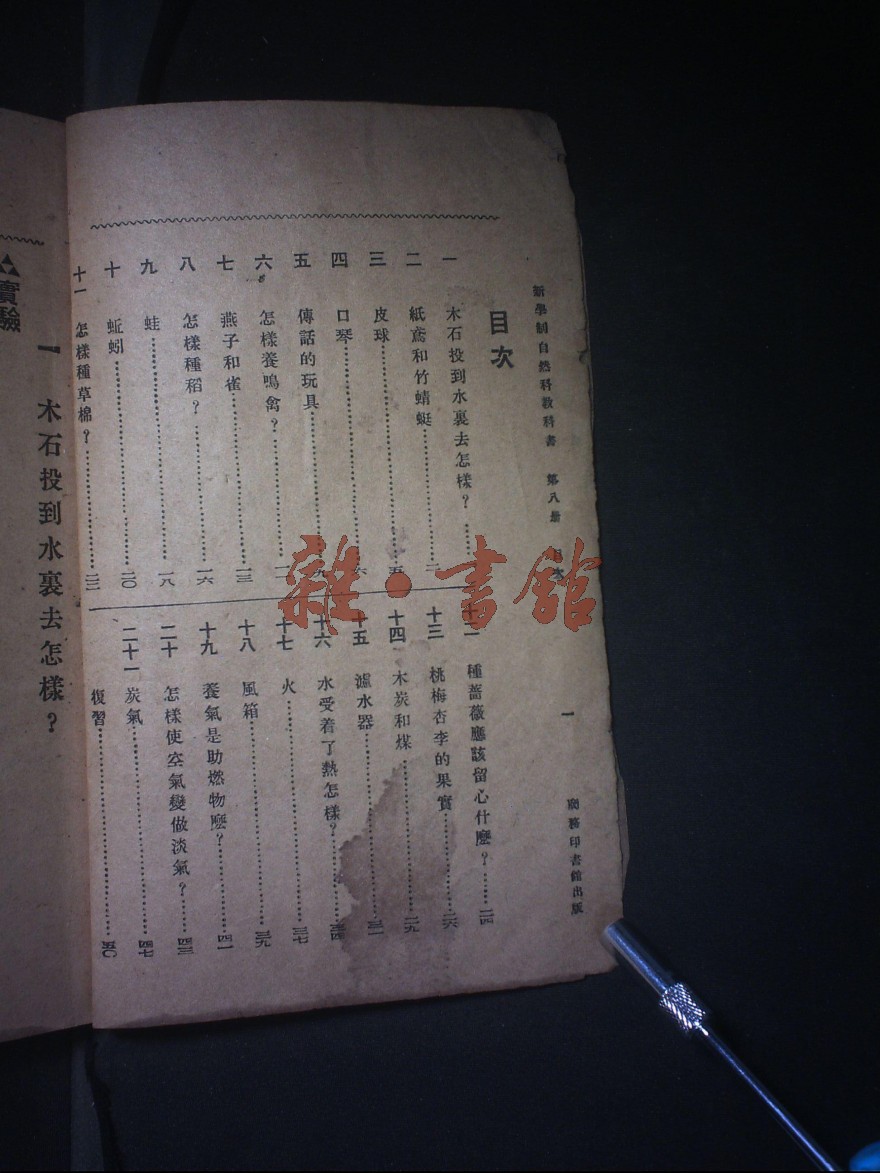 新學制自然科教科書 第八册 目次 一 商務印書館出版
目次
一 木石投到水裏去怎樣？
二 紙鳶和竹蜻蜓
三 皮球
四 口琴
五 傳話的玩具
六 怎樣養鳴禽？
七 燕子和雀 一三
八 怎樣種稻？ 一六
九 蛙 一八
十 蚯蚓 二〇
十一 怎樣種草棉？ 二二
十二 種薔薇應該留心什麼？ 二四
十三 桃梅杏李的果實 二六
十四 木炭和煤 二九
十五 濾水器 三一
十六 水受着了熱怎樣？ 三四
十七 火 三七
十八 風箱 三九
十九 養氣是助燃物麼？ 四一
二十 怎樣使空氣變做淡氣？ 四三
二十一 炭氣 四七
復習 五〇
一 木石投到水裏去怎樣？
實驗
雜·書館